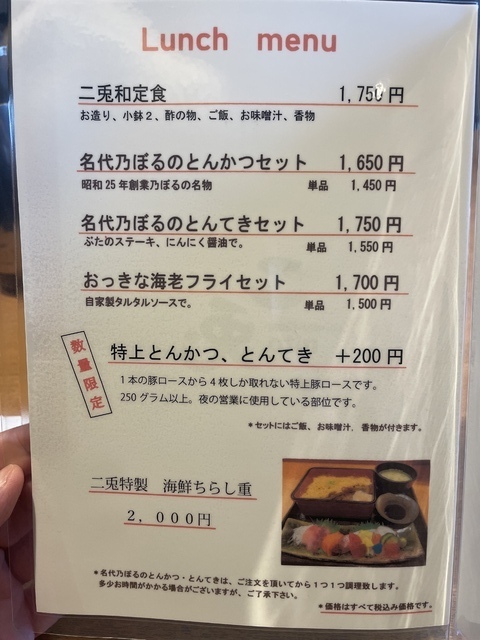 Lunch menu
二兎和定食 1,750円
お造り、小鉢２、酢の物、ご飯、お味噌汁、香物
名代乃ぼるのとんかつセット 1,650円
昭和25年創業乃ぼるの名物 単品 1,450円
名代乃ぼるのとんてきセット 1,750円
ぶたのステーキ、にんにく醤油で。 単品 1,550円
おっきな海老フライセット 1,700円
自家製タルタルソースで。 単品 1,500円
数量限定
特上とんかつ、とんてき ＋200円
１本の豚ロースから４枚しか取れない特上豚ロースです。
250グラム以上。夜の営業に使用している部位です。
＊セットにはご飯、お味噌汁、香物が付きます。
二兎特製 海鮮ちらし重
２，０００円
＊名代乃ぼるのとんかつ・とんてきは、ご注文を頂いてから１つ１つ調理致します。
多少お時間がかかる場合がございますが、ご了承下さい。
＊価格はすべて税込み価格です。